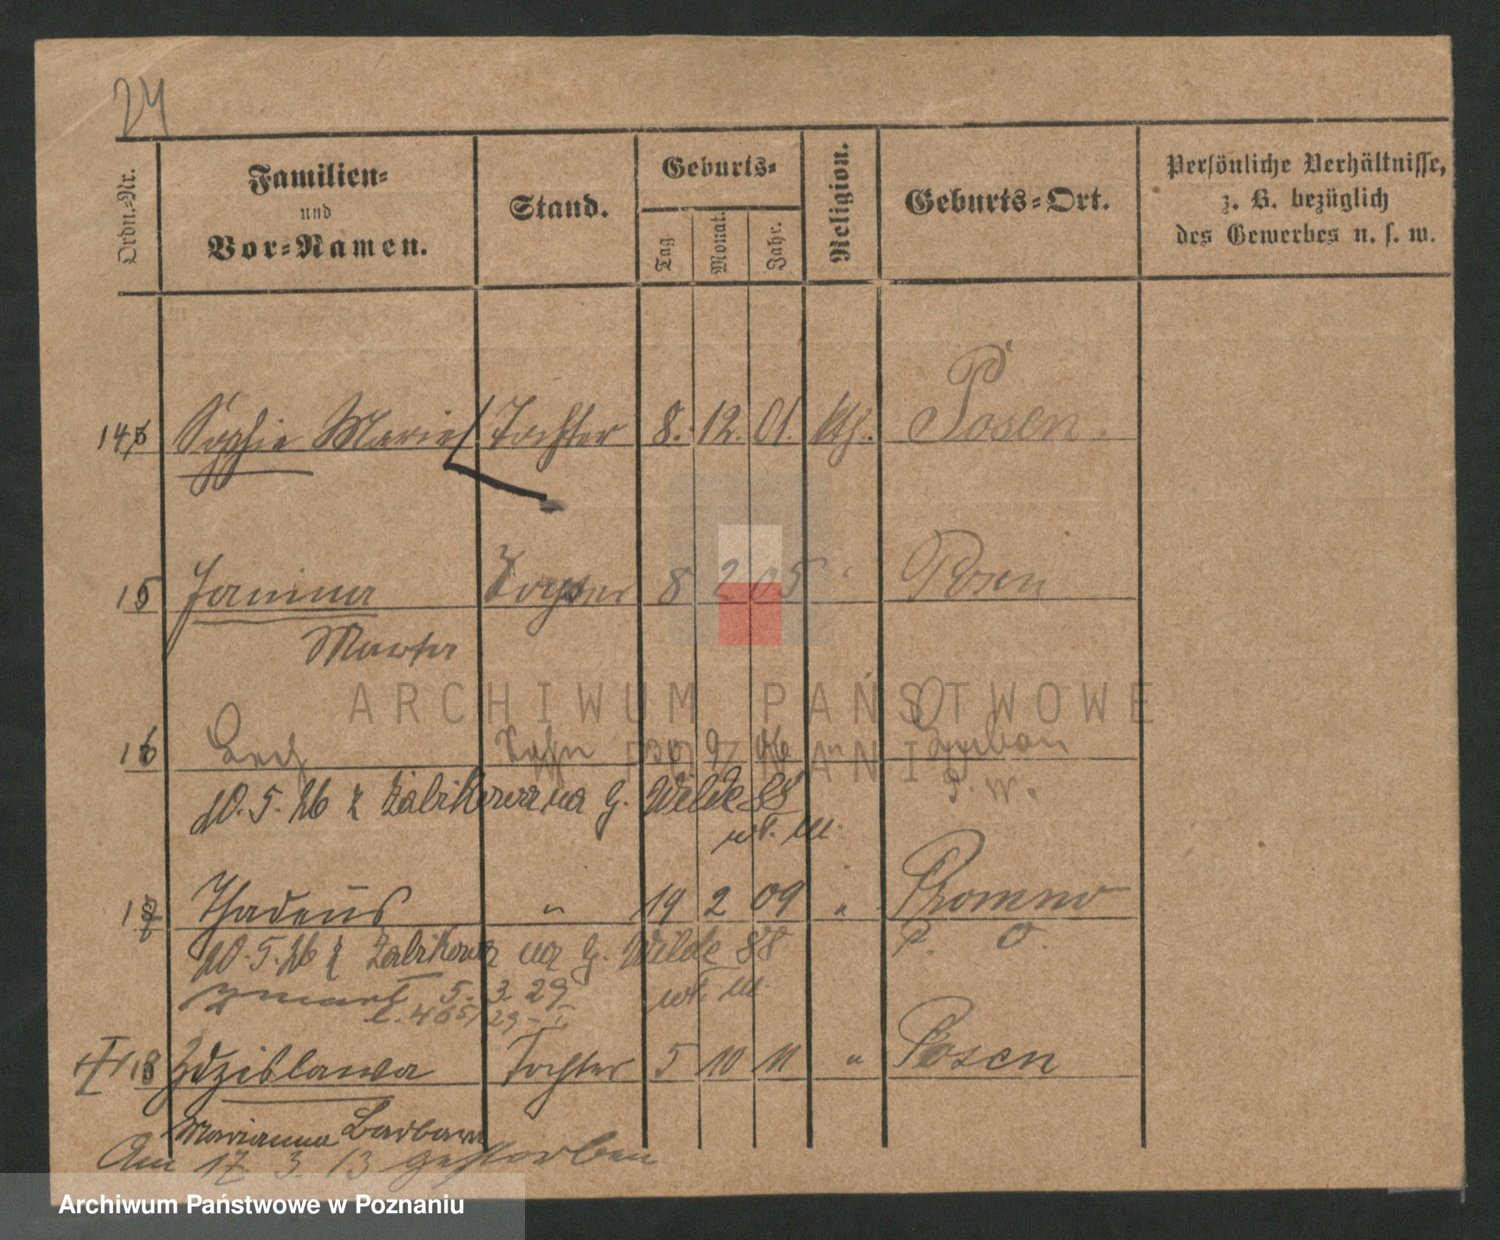 24
Ordn.-Nr.
Familien-
und
Vor-Namen.
Stand.
Geburts-
Tag
Monat.
Jahr.
Religion.
Geburts-Ort.
Persönliche Verhältnisse,
z. B. bezüglich
des Gewerbes u. s. w.
14 Sophie Marie Tochter 8. 12. 01. kth. Posen.
15 Janina Tochter 8 2 05 " Posen
Martha
16 Lech Sohn 30 9 06 " Luban
P. W.
20. 5. 26 z Żabikowa na G. Wilde 88
wł. m.
17 Thadeus " 19 2 09 " Promno
P. O.
20. 5. 26 z Żabikowa na G. Wilde 88
wł. m.
zmarł 5. 3. 29
L. 465/29-I
18 Zdzislawa Tochter 5 10 11 " Posen
Marianna Barbara
Am 17 3. 13 gestorben
ARCHIWUM PAŃSTWOWE
W POZNANIU
Archiwum Państwowe w Poznaniu